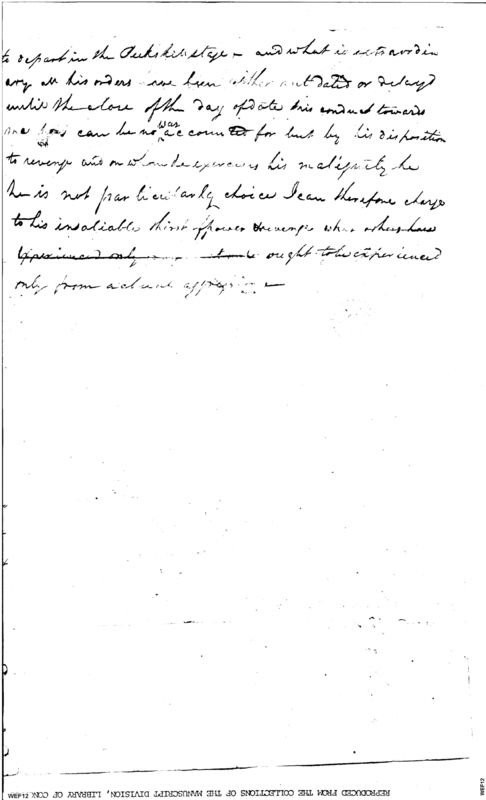 to depart in the Peekskill stage - and what is extraordin
ary all his orders have been either antdated or delayd
until the close of the day of date his conduct towards
me can be no was account for but by his disposition
to revenge and on whom he exercises his malignity he
he is not particularly choice I can therefore charge
to his insatiable thirst of power & revenge what others have
experienced only ought to be experienced
only from actual aggression -
REPRODUCED FROM THE COLLECTIONS OF THE MANUSCRIPT DIVISION, LIBRARY OF CON
WEF12
WEF12